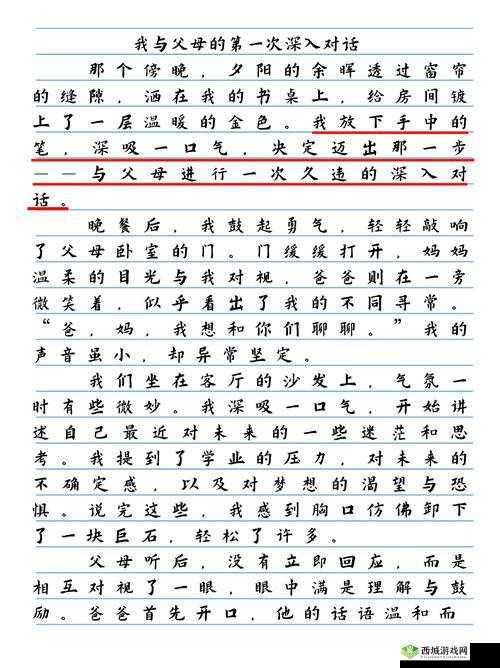 我与父母的第一次深入对话
那个傍晚，夕阳的余晖透过窗帘
的缝隙，洒在我的书桌上，给房间镀
上了一层温暖的金色。我放下手中的
笔，深吸一口气，决定迈出那一步
——与父母进行一次久违的深入对
话。
晚餐后，我鼓起勇气，轻轻敲响
了父母卧室的门。门缓缓打开，妈妈
温柔的目光与我对视，爸爸则在一旁
微笑着，似乎看出了我的不同寻常。
“爸，妈，我想和你们聊聊。”我的
声音虽小，却异常坚定。
我们坐在客厅的沙发上，气氛一
时有些微妙。我深吸一口气，开始讲
述自己最近对未来的一些迷茫和思
考。我提到了学业的压力，对未来的
不确定感，以及对梦想的渴望与恐
惧。说完这些，我感到胸口仿佛卸下
了一块巨石，轻松了许多。
父母听后，没有立即回应，而是
相互对视了一眼，眼中满是理解与鼓
励。爸爸首先开口，他的话语温和而
西城游戏网